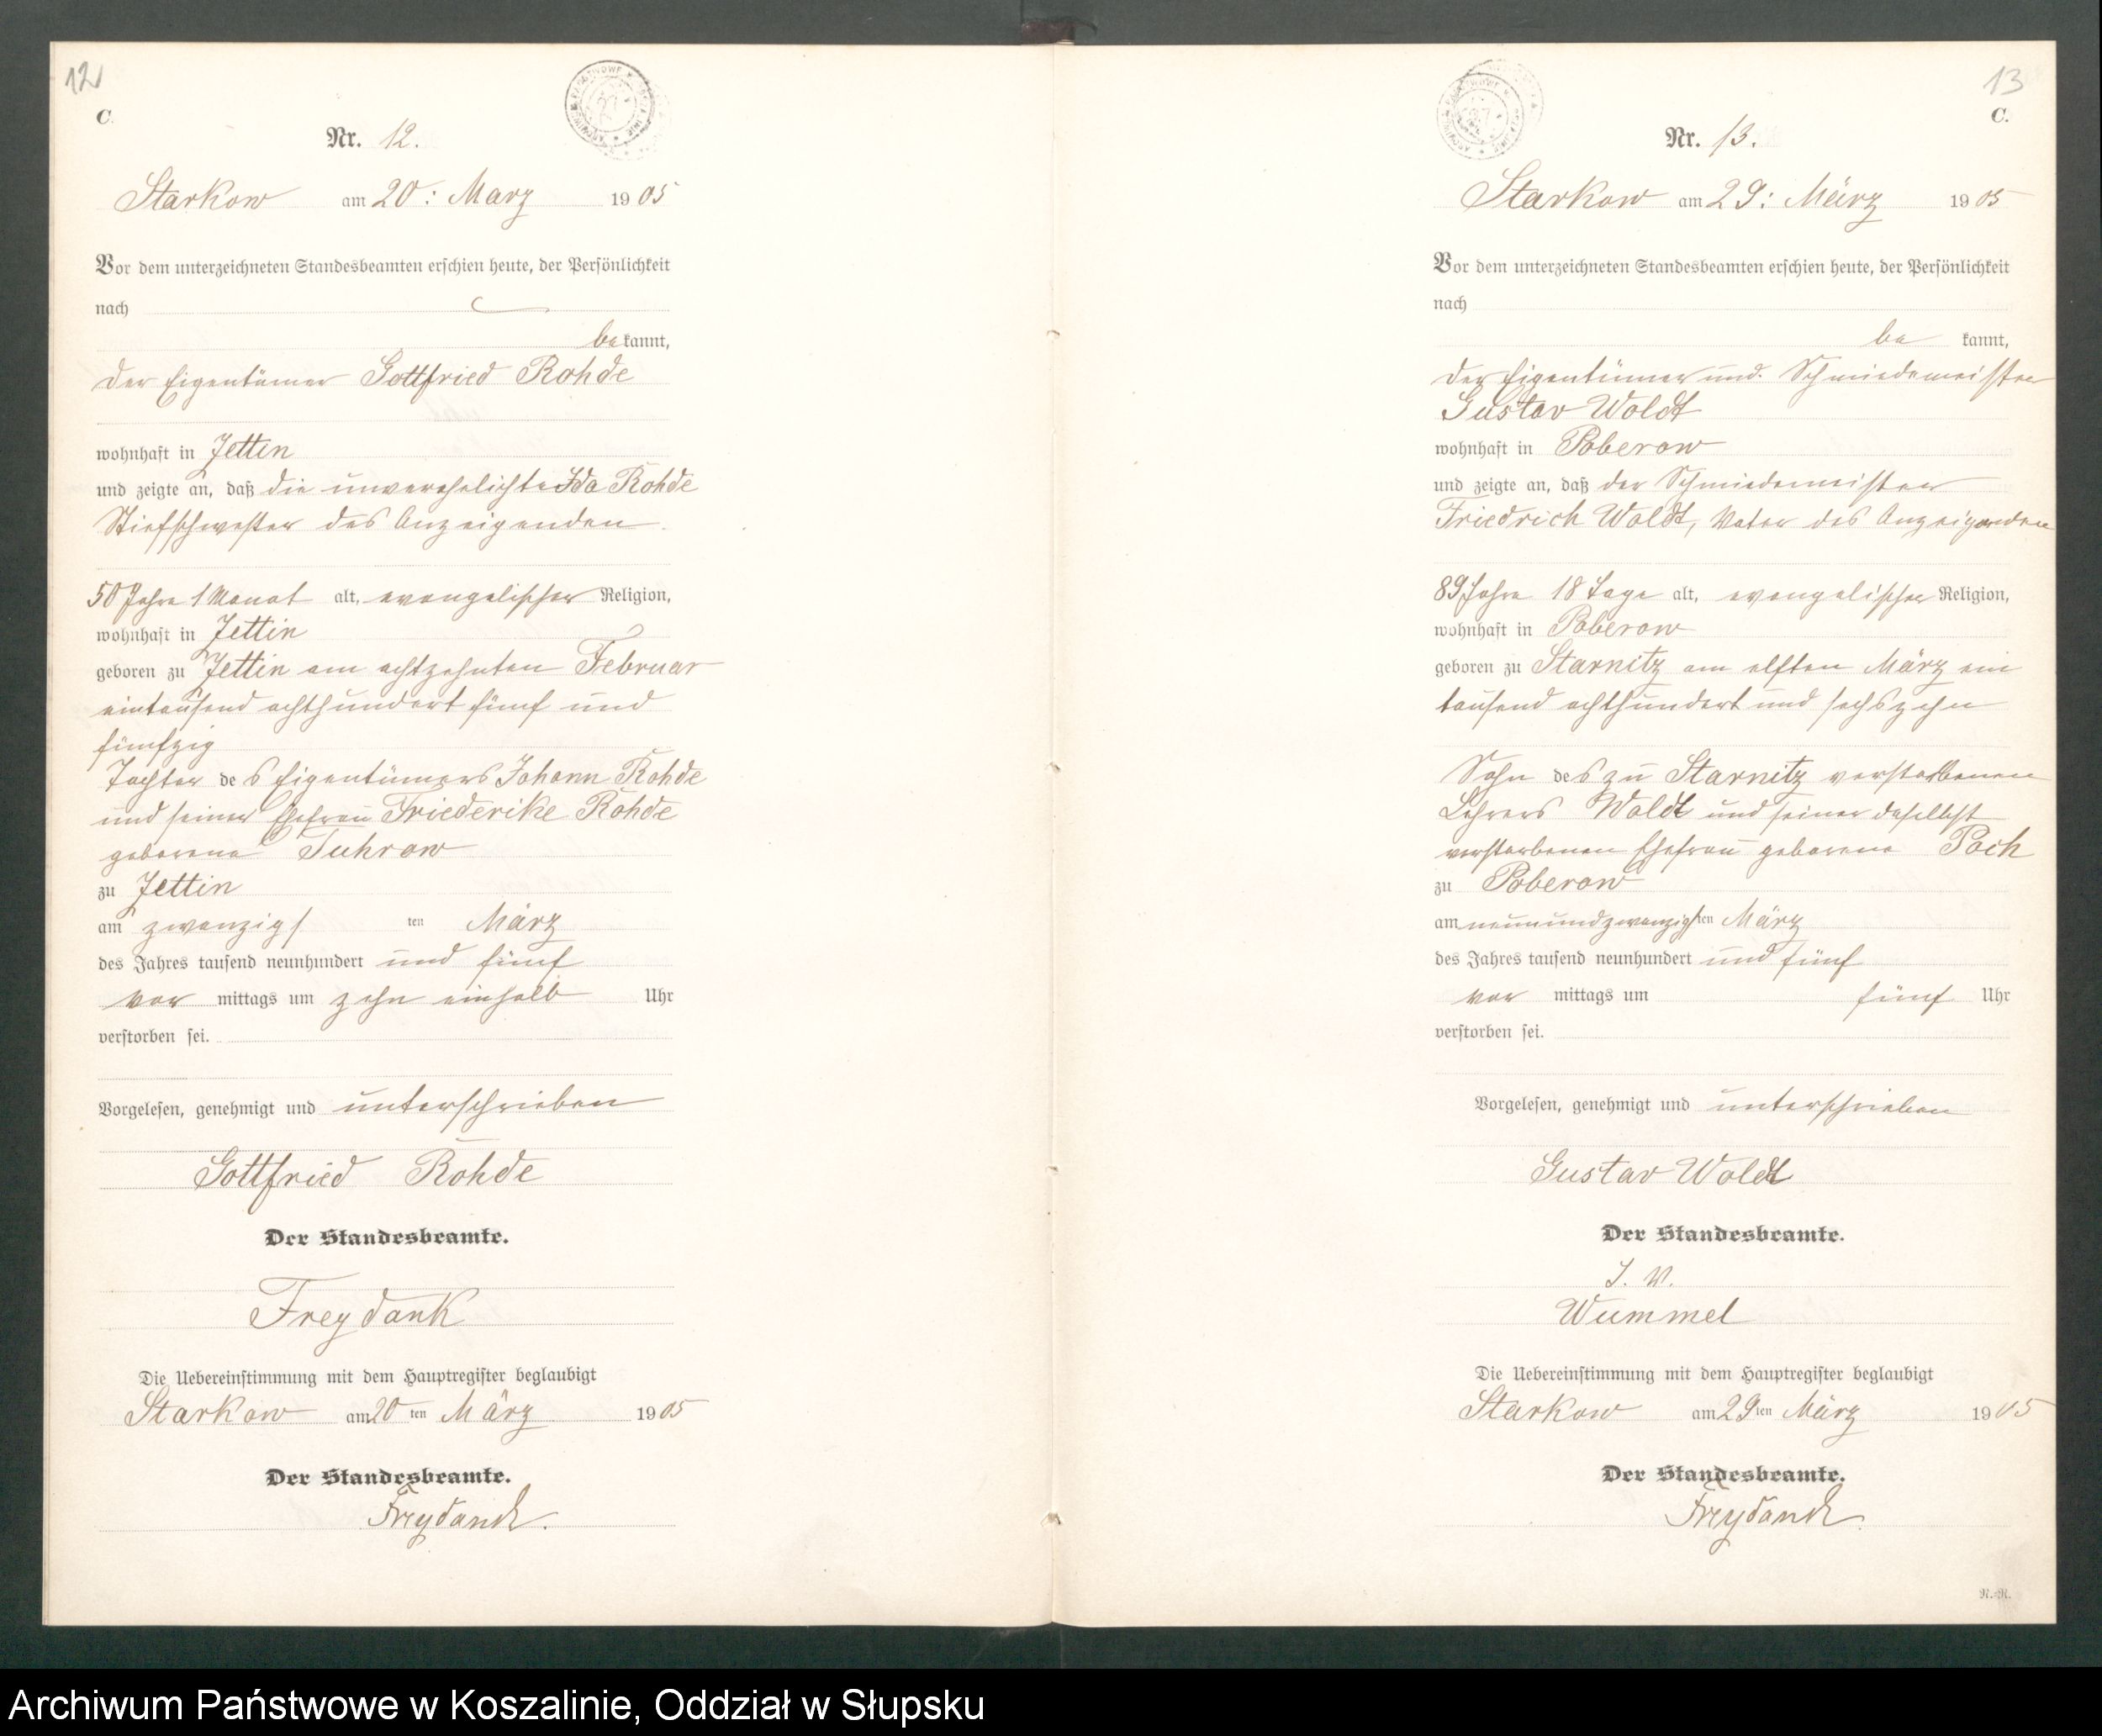 12
C.
Nr. 12.
Starkow am 20: Marz 1905
Vor dem unterzeichneten Standesbeamten erschien heute, der Persönlichkeit
nach
bekannt,
der Eigentümer Gottfried Rohde
wohnhaft in Jettin
und zeigte an, daß die unverehelichte Ida Rohde
Stiefschwester des Anzeigenden.
50 Jahre 1 Monat alt, evangelischer Religion,
wohnhaft in Jettin
geboren zu Jettin am achtzehnten Februar
eintausend achthundert fünf und
fünfzig
Tochter des Eigentümers Johann Rohde
und seiner Ehefrau Friederike Rohde
geborene Tuhrow
zu Jettin
am zwanzigsten März
des Jahres tausend neunhundert und fünf
vor mittags um zehn einhalb Uhr
verstorben sei.
Vorgelesen, genehmigt und unterschrieben
Gottfried Rohde
Der Standesbeamte.
Freydank
Die Uebereinstimmung mit dem Hauptregister beglaubigt
Starkow am 20ten März 1905
Der Standesbeamte.
Freydank.
13
C.
Nr. 13.
Starkow am 29: März 1905
Vor dem unterzeichneten Standesbeamten erschien heute, der Persönlichkeit
nach
be kannt,
der Eigentümer und Schmiedemeister
Gustav Woldt
wohnhaft in Poberow
und zeigte an, daß der Schmiedemeister
Friedrich Woldt, Vater des Anzeigenden
89 Jahre 18 Tage alt, evangelischer Religion,
wohnhaft in Poberow
geboren zu Starnitz am elften März ein
tausend achthundert und sechszehn
Sohn des zu Starnitz verstorbenen
Lehrers Woldt und seiner daselbst
verstorbenen Ehefrau geborene Poch
zu Poberow
am neunundzwanzigsten März
des Jahres tausend neunhundert und fünf
vor mittags um fünf Uhr
verstorben sei.
Vorgelesen, genehmigt und unterschrieben
Gustav Woldt
Der Standesbeamte.
I. V.
Wummel
Die Uebereinstimmung mit dem Hauptregister beglaubigt
Starkow am 29ten März 1905
Der Standesbeamte.
Freydank
R.-R.
Archiwum Państwowe w Koszalinie, Oddział w Słupsku